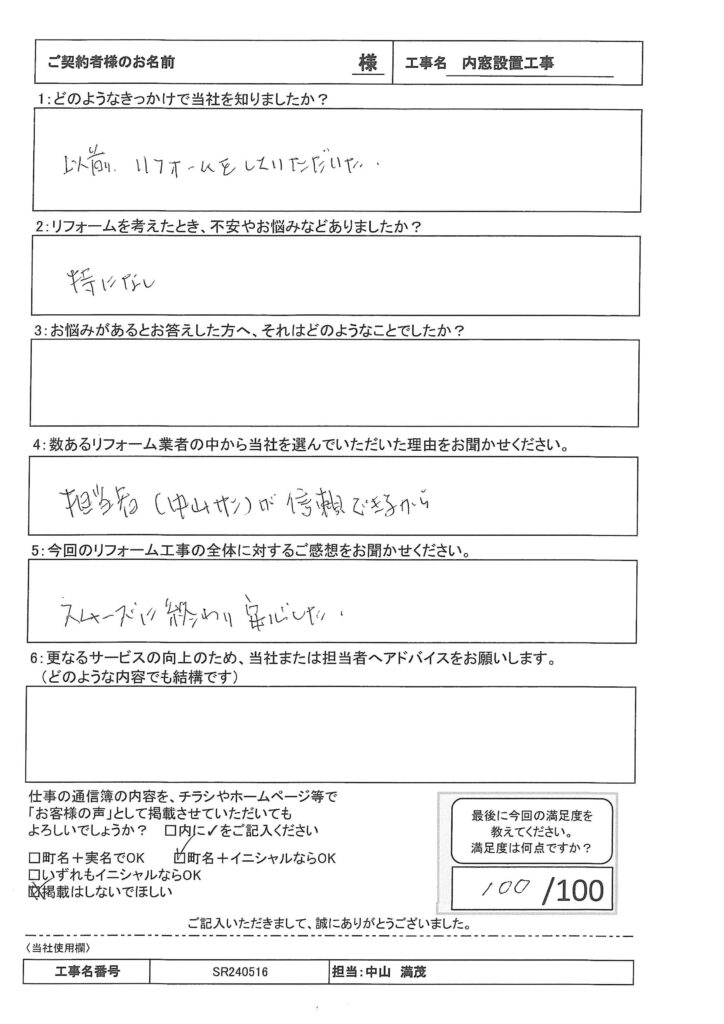 ご契約者様のお名前 様 工事名 内窓設置工事
1:どのようなきっかけで当社を知りましたか?
以前、リフォームをしていただいた.
2:リフォームを考えたとき、不安やお悩みなどありましたか?
特になし
3:お悩みがあるとお答えした方へ、それはどのようなことでしたか?
4:数あるリフォーム業者の中から当社を選んでいただいた理由をお聞かせください。
担当者(中山サン)が信頼できるから
5:今回のリフォーム工事の全体に対するご感想をお聞かせください。
スムーズに終わり安心した.
6:更なるサービスの向上のため、当社または担当者へアドバイスをお願いします。
(どのような内容でも結構です)
仕事の通信簿の内容を、チラシやホームページ等で
「お客様の声」として掲載させていただいても
よろしいでしょうか? □内に✓をご記入ください
□町名+実名でOK ☑町名+イニシャルならOK
□いずれもイニシャルならOK
☒掲載はしないでほしい
最後に今回の満足度を
教えてください。
満足度は何点ですか?
100 /100
ご記入いただきまして、誠にありがとうございました。
〈当社使用欄〉
工事名番号 SR240516 担当:中山 満茂